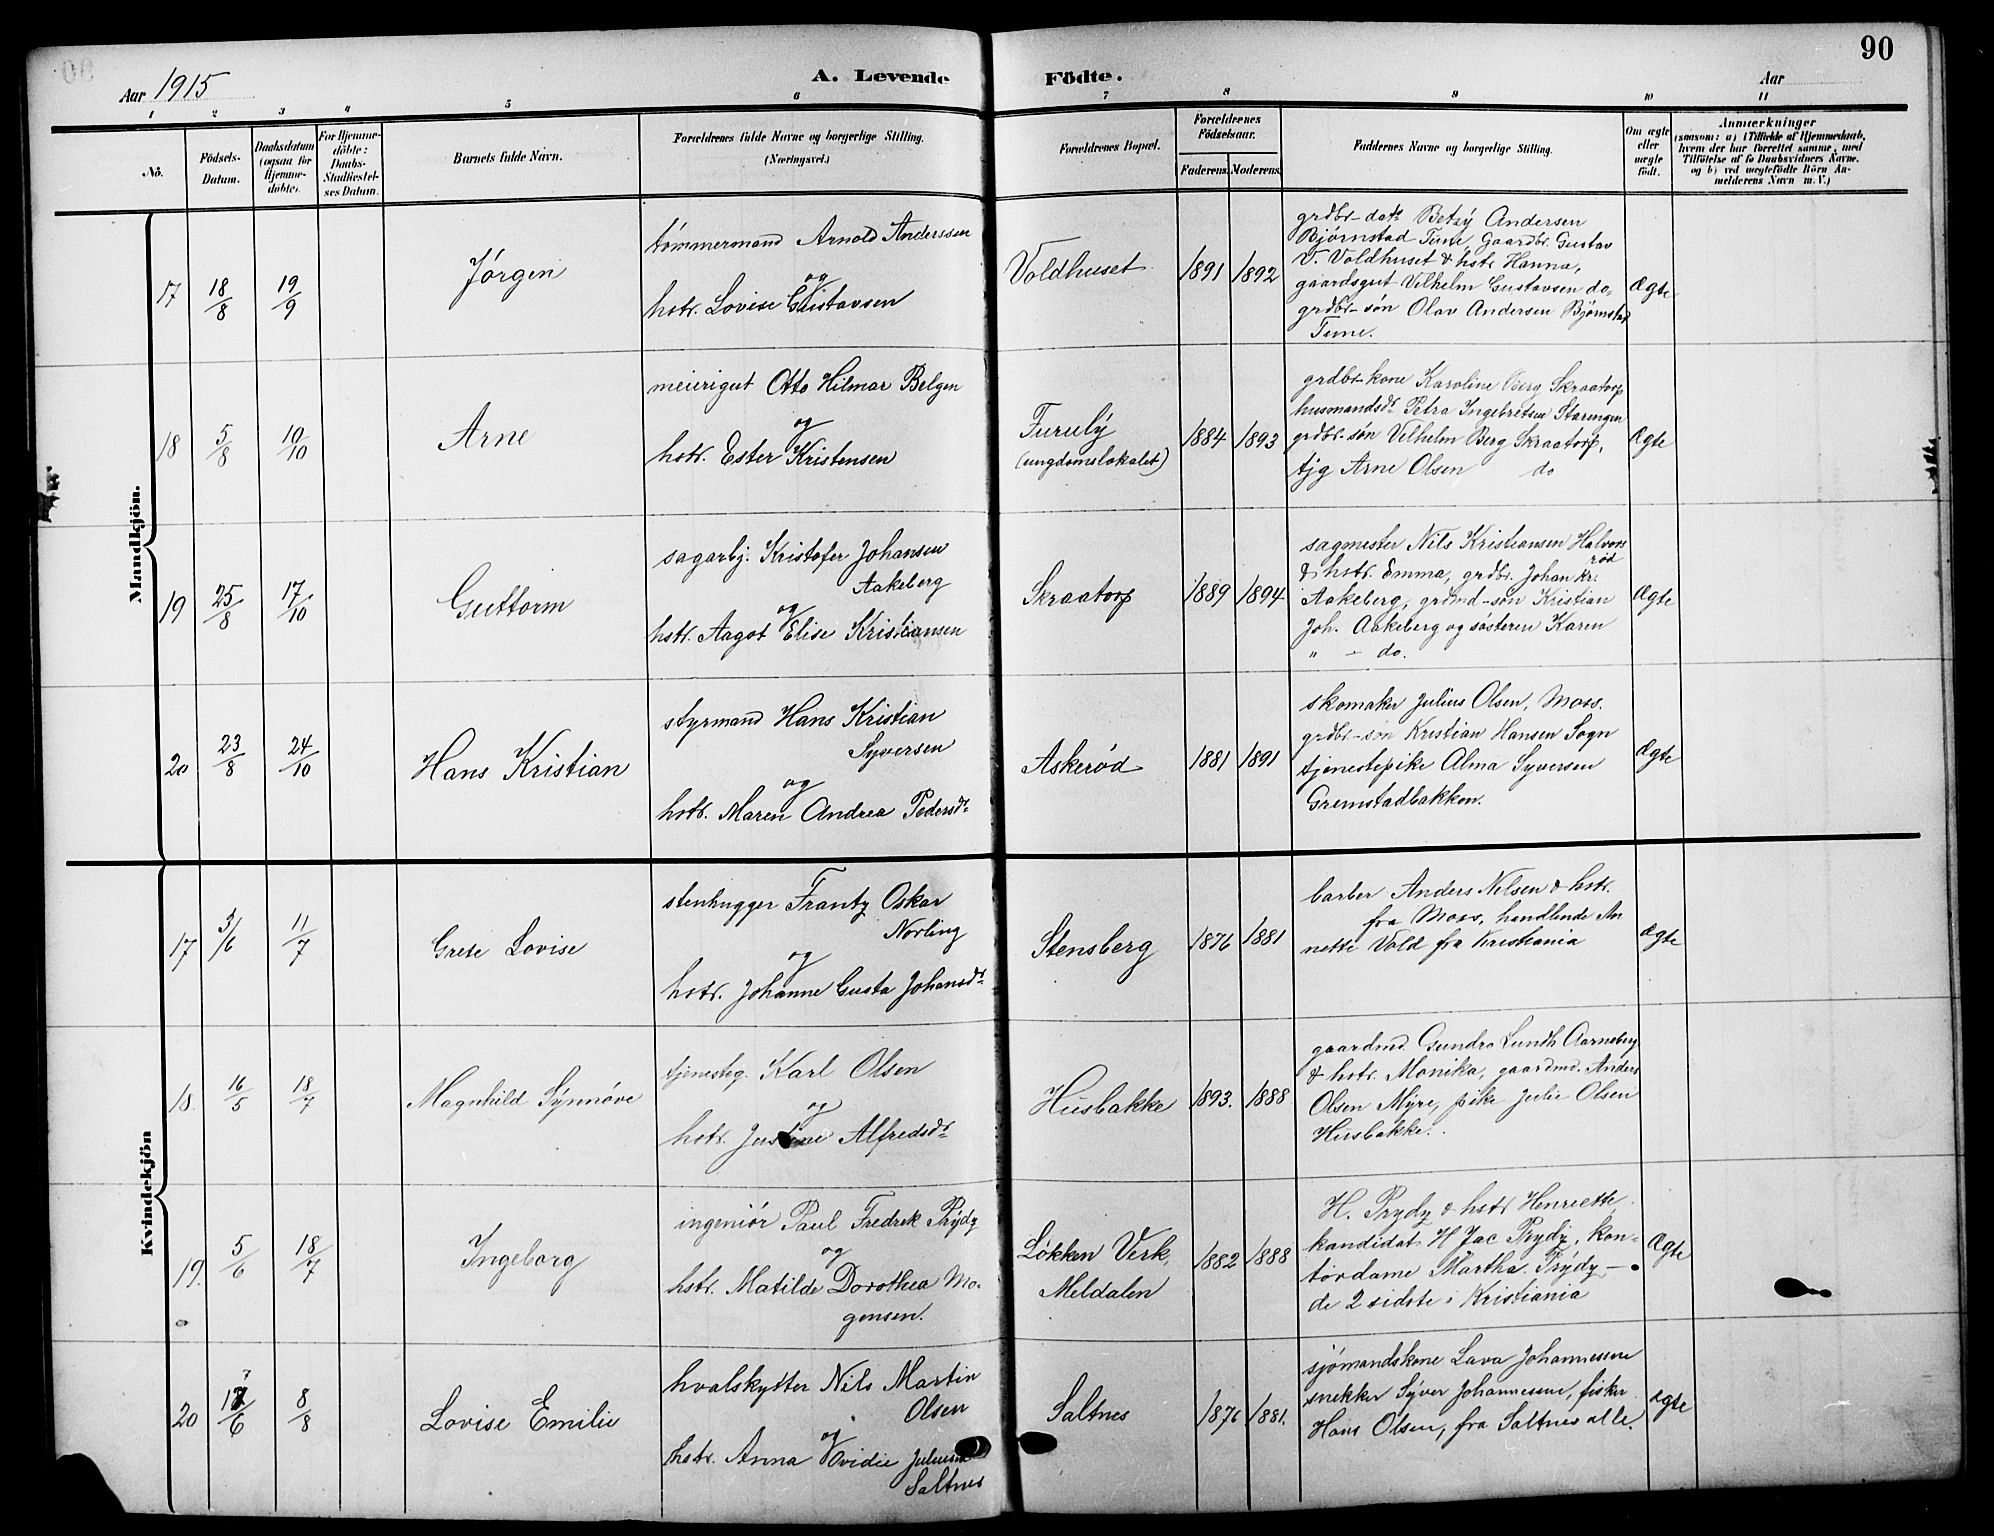 90
Aar 1915
A. Levende Födte.
Aar
1 2 3 4 5 6 7 8 9 10 11
No.
Födsels-
Datum.
Daabsdatum
(ogsaa for
Hjemme-
döbte).
For Hjemme-
döbte:
Daabs-
Stadfæstel-
ses Datum.
Barnets fulde Navn.
Forældrenes fulde Navne og borgerlige Stilling.
(Næringsvei.)
Forældrenes Bopæl.
Forældrenes
Födselsaar.
Faderens. Moderens.
Faddernes Navne og borgerlige Stilling.
Om ægte
eller
uægte
födt.
Anmærkninger
(saasom: a) i Tilfælde af Hjemmedaab,
hvem der har forrettet samme, med
Tilföielse af to Daabsvidners Navne.
og b) ved uægtefödte Börn An-
melderens Navn m. V.)
Mandkjön.
17
18/8
19/9
Jórgen
tömmermand Arnold Anderssen
og
hstr. Lovise Gustavsen
Voldhuset
1891 1892
grdbr-datr Betsy Andersen
Bjørnstad Tune, Gaardbr. Gustav
V. Voldhuset & hstr Hanna,
gaardsgut Vilhelm Gustavsen do-
grdbr-søn Olav Andersen Bjørnstad
Tune.
Ægte
18
5/8
10/10
Arne
meierigut Otto Hilmar Belgen
og
hstr. Ester Kristensen
Furuly
(ungdomslokalet)
1884 1893
grdbr-kone Karoline Berg Skraatorp
husmandsdr Petra Ingebretsen Starengen
grdbr-søn Vilhelm Berg Skraatorp,
tjg Arne Olsen do
Ægte
19
25/8
17/10
Guttorm
sagarbj. Kristofer Johansen
Aakeberg
og
hstr. Aagot Elise Kristiansen
Skraatorp
1889 1894
sagmester Nils Kristiansen Halvors
rød
& hstr. Emma, grdbr. Johan Kr.
Aakeberg, grdmd-søn Kristian
Joh. Aakeberg og søsteren Karen
" - do.
Ægte
20
23/8
24/10
Hans Kristian
styrmand Hans Kristian
Syversen
og
hstr. Maren Andrea Pedersdr
Askerød
1881 1891
skomaker Julius Olsen, Moss.
grdbr-søn Kristian Hansen Sogn
tjenestepike Alma Syversen
Gremstadbakken.
Ægte
Kvindekjön
17
3/6
11/7
Grete Lovise
stenhugger Frantz Oskar
Norling
og
hstr. Johanne Gusta Johansdr
Stensberg
1876 1881
barber Anders Nilsen & hstr.
fra Moss, handlende An
nette Vold fra Kristiania
Ægte
18.
16/5
18/7
Magnhild Synnøve
tjenesteg. Karl Olsen
og
hstr. Justine Alfredsdr
Husbakke
1893. 1888
gaardmd. Gundro Lundh Aarneberg
& hstr. Monika, gaardmd. Anders
Olsen Myre, pike Julie Olsen
Husbakke.
19.
5/6
18/7
Ingeborg
ingeniør Paul Fredrek Prydz
og
hstr. Matilde Dorothea Mo-
gensen.
Løkken Verk,
Meldalen
1882 1888
H. Prydz & hstr Henriette
kandidat H Jac Prydz, kon-
tordame Martha Prydz -
de 2 sidste i Kristiania
Ægte
20
17/6
8/8
Lovise Emilie
hvalskytter Nils Martin
Olsen
og
hstr. Anna Ovidie Juliusdr
Saltnes
Saltnes
1876 1881.
sjømandskone Lava Johannessen
snekker Syver Johannessen, fisker
Hans Olsen, fra Saltnes alle.
Ægte